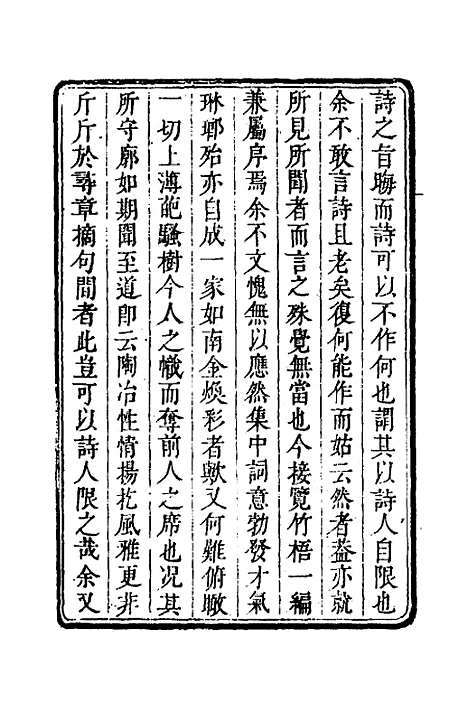 詩之旨晦而詩可以不作何也謂其以詩人自限也
余不敢言詩且老矣復何能作而姑云然者葢亦就
所見所聞者而言之殊覺無當也今接覽竹梧一編
兼屬序焉余不文愧無以應然集中詞意勃發才氣
琳瑯殆亦自成一家如南金煥彩者歟又何難俯瞰
一切上薄葩騷樹今人之幟而奪前人之席也况其
所守廓如期聞至道卽云陶冶性情揚扢風雅更非
斤斤於尋章摘句間者此豈可以詩人限之哉余又